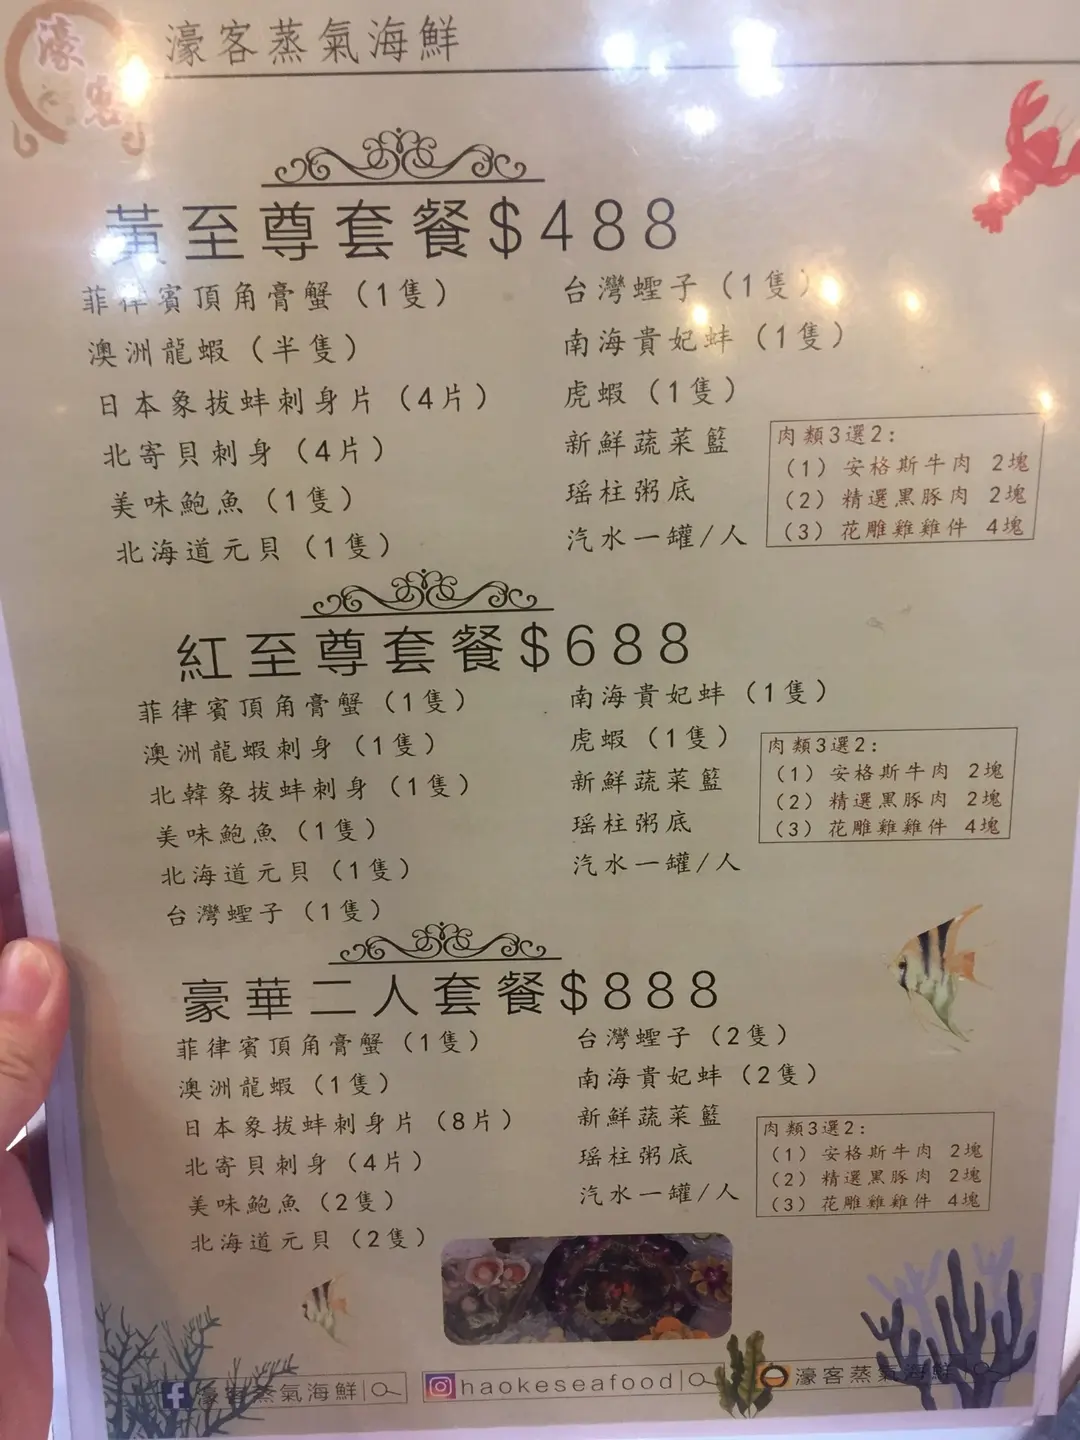 濠客
濠客蒸氣海鮮
黃至尊套餐$488
菲律賓頂角膏蟹（1隻）
澳洲龍蝦（半隻）
日本象拔蚌刺身片（4片）
北寄貝刺身（4片）
美味鮑魚（1隻）
北海道元貝（1隻）
台灣蟶子（1隻）
南海貴妃蚌（1隻）
虎蝦（1隻）
新鮮蔬菜籃
瑶柱粥底
汽水一罐/人
肉類3選2：
（1）安格斯牛肉 2塊
（2）精選黑豚肉 2塊
（3）花雕雞雞件 4塊
紅至尊套餐$688
菲律賓頂角膏蟹（1隻）
澳洲龍蝦刺身（1隻）
北韓象拔蚌刺身（1隻）
美味鮑魚（1隻）
北海道元貝（1隻）
台灣蟶子（1隻）
南海貴妃蚌（1隻）
虎蝦（1隻）
新鮮蔬菜籃
瑶柱粥底
汽水一罐/人
肉類3選2：
（1）安格斯牛肉 2塊
（2）精選黑豚肉 2塊
（3）花雕雞雞件 4塊
豪華二人套餐$888
菲律賓頂角膏蟹（1隻）
澳洲龍蝦（1隻）
日本象拔蚌刺身片（8片）
北寄貝刺身（4片）
美味鮑魚（2隻）
北海道元貝（2隻）
台灣蟶子（2隻）
南海貴妃蚌（2隻）
新鮮蔬菜籃
瑶柱粥底
汽水一罐/人
肉類3選2：
（1）安格斯牛肉 2塊
（2）精選黑豚肉 2塊
（3）花雕雞雞件 4塊
濠客蒸氣海鮮
haokeseafood
濠客蒸氣海鮮